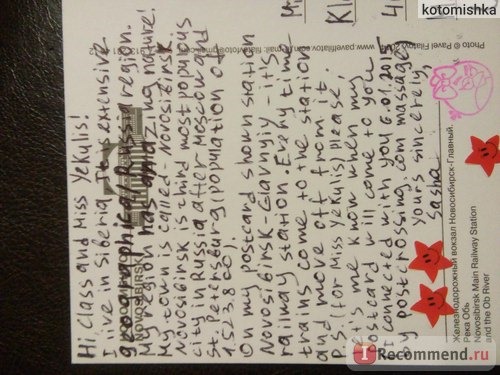 kotomishka
Hi Class and Miss Yekulis!
I live in Siberia. It is extensive
geographical Russia region.
My region has amazing nature!
My town is called - Novosibirsk.
Novosibirsk is third most populous
city in Russia after Moscow and
St. Petersburg (population of
On my postcard shown station
Novosibirsk-Glavnyiy - it's
railway station. Every time
trains come to the station
and move off from it
P.S. (for Miss Yekulis) please,
let me know when my
postcard will come to you
I connected with you 6.01.2015
by postcrossing.com massages
Yours sincerely,
Sasha
NOVOSIBIRSK
Photo © Pavel Filatov
www.pavelfilatov.com
Железнодорожный вокзал Новосибирск-Главный.
Река Обь
Novosibirsk Main Railway Station
and the Ob River
I Recommend.ru